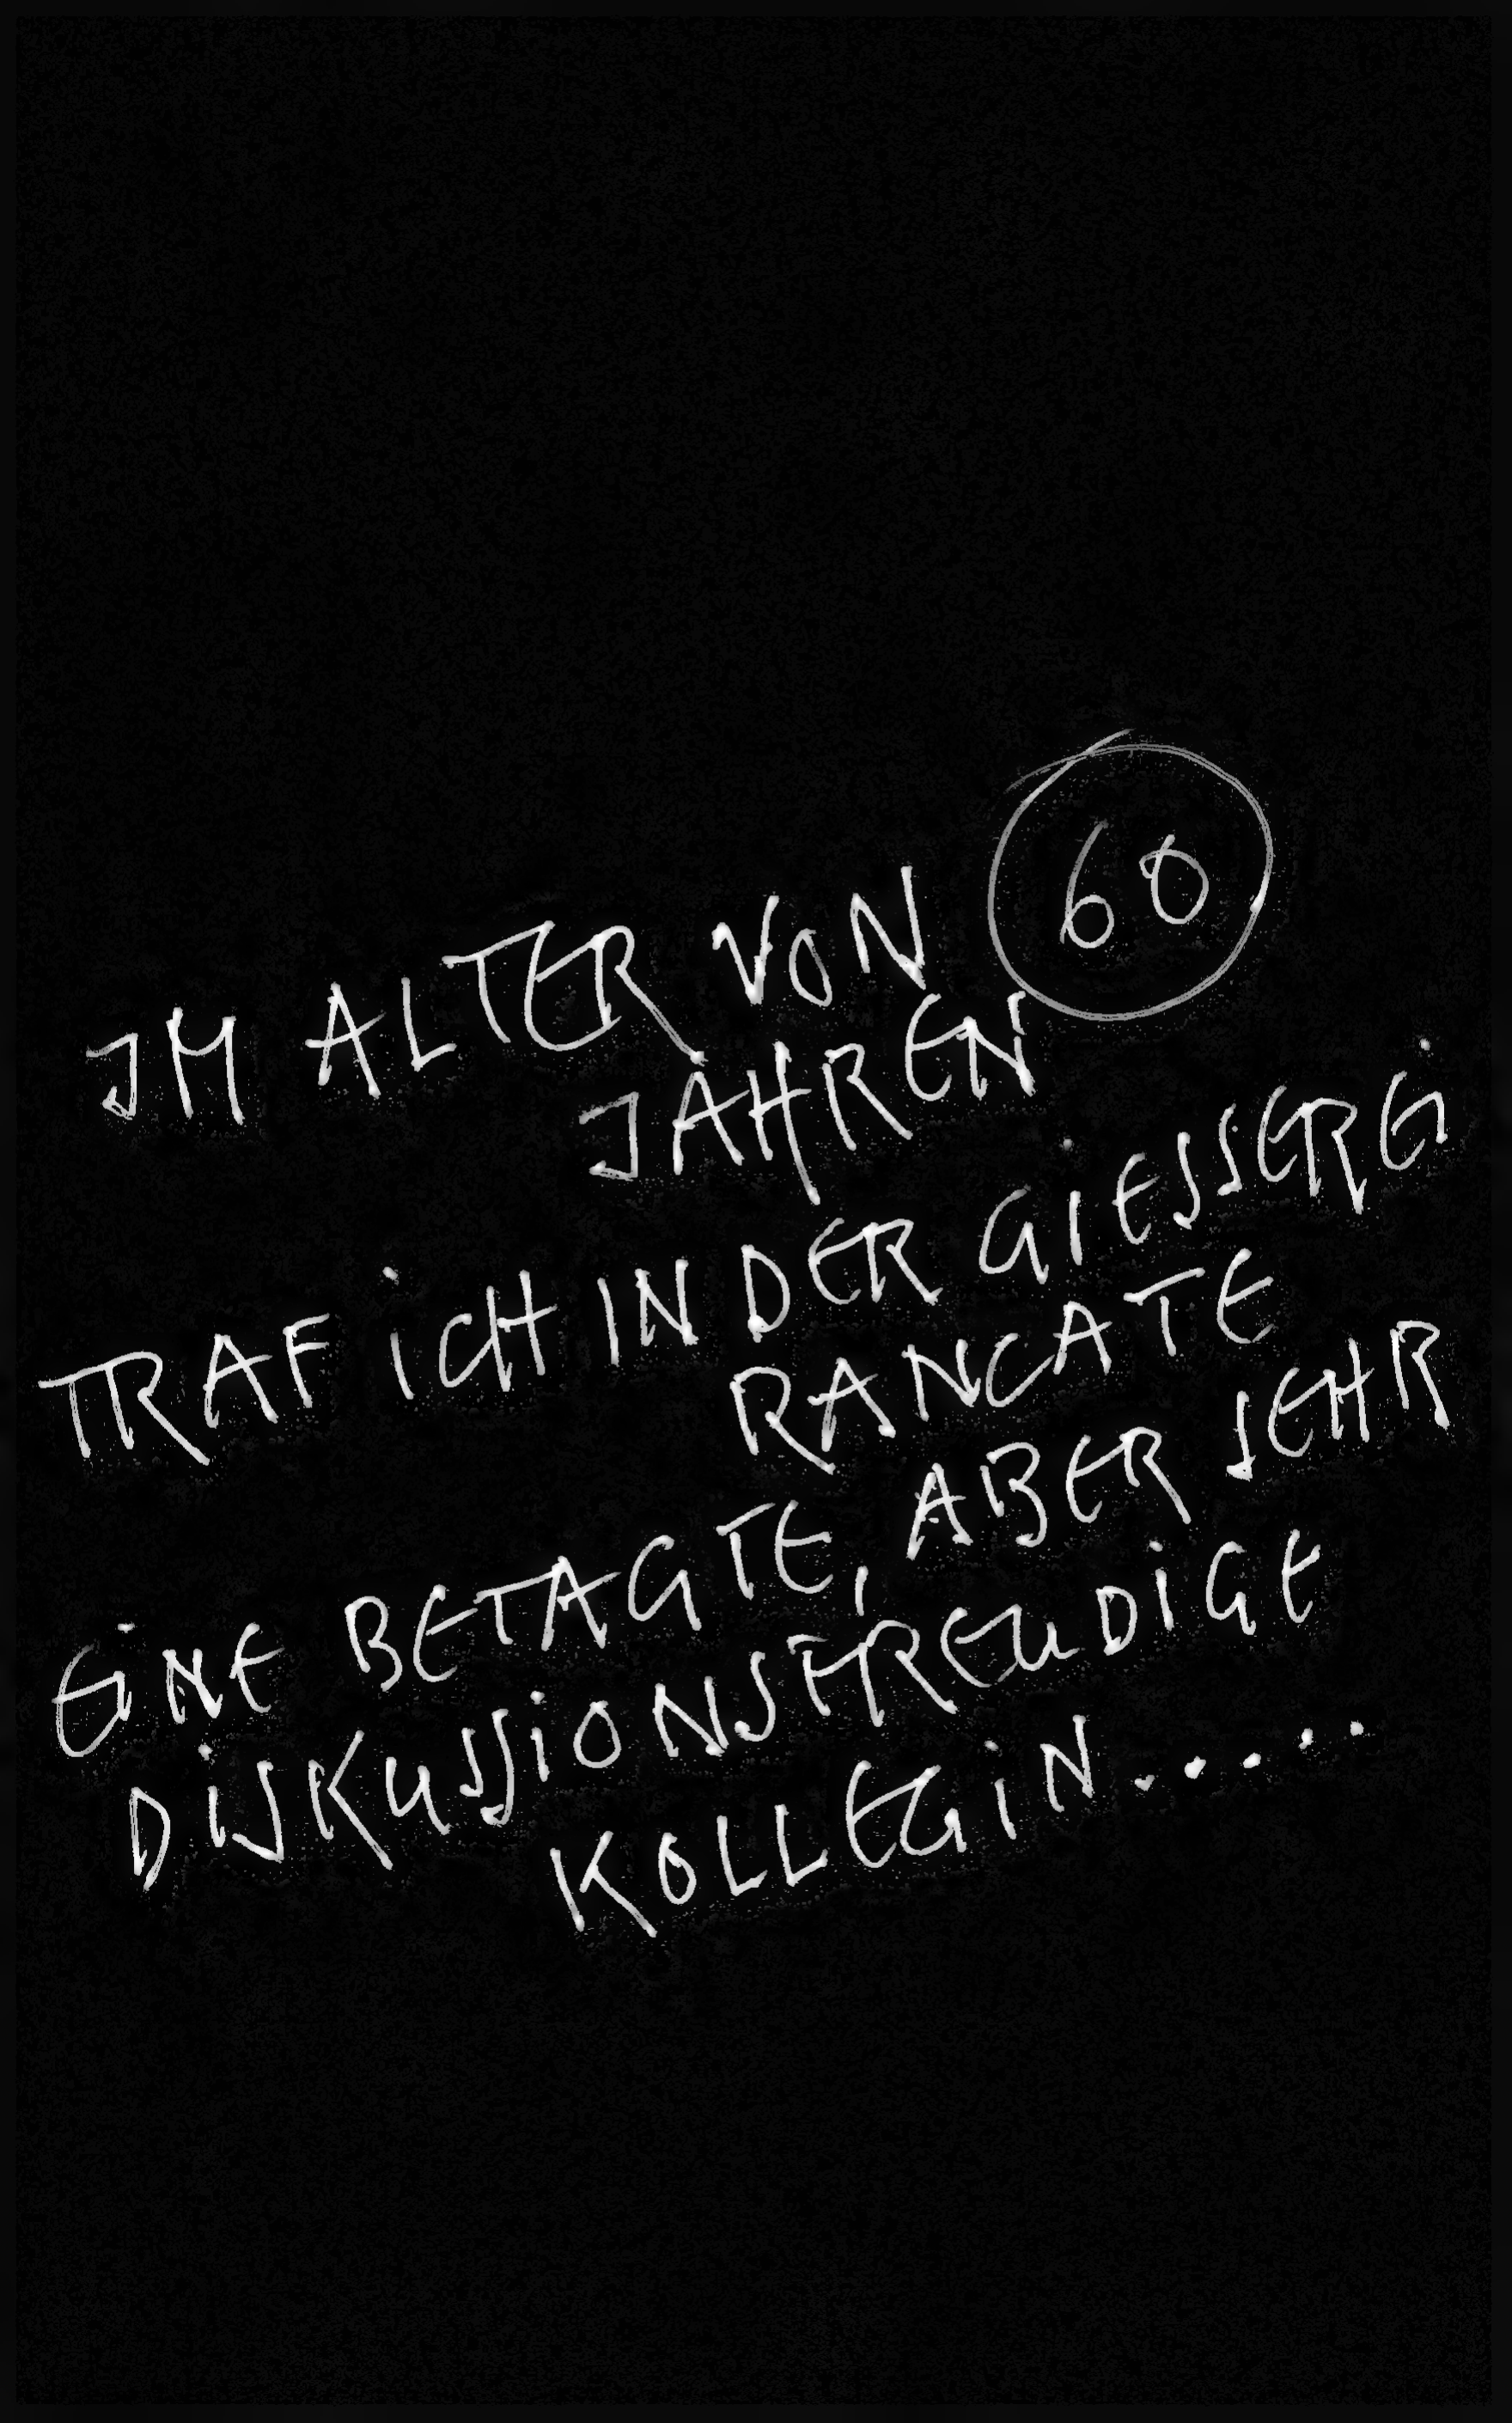 IM ALTER VON 60
JAHREN
TRAF ICH IN DER GIESSEREI
RANCATE
EINE BETAGTE, ABER SEHR
DISKUSSIONSFREUDIGE
KOLLEGIN.....